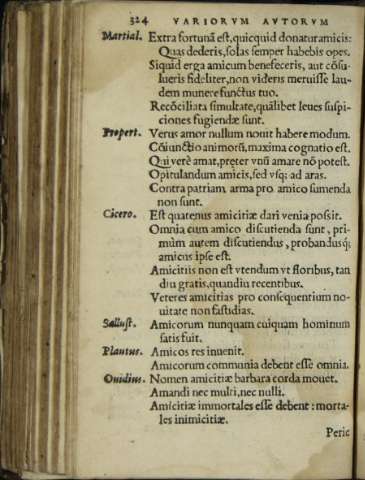 324 VARIORVM AVTORVM
Martial. Extra fortunã est, quicquid donatur amicis:
Quas dederis, solas semper habebis opes.
Siquid erga amicum benefeceris, aut cõsu-
lueris fideliter, non videris meruisse lau-
dem munere functus tuo.
Recõciliata simultate, quãlibet leues suspi-
ciones fugiendæ sunt.
Propert. Verus amor nullum nouit habere modum.
Cõiunctio animorũ, maxima cognatio est.
Qui verè amat, preter vnũ amare nõ potest.
Opitulandum amicis, sed vsq; ad aras.
Contra patriam, arma pro amico sumenda
non sunt.
Cicero. Est quatenus amicitiæ dari venia possit.
Omnia cum amico discutienda sunt, pri-
mùm autem discutiendus, probandusq;
amicus ipse est.
Amicitiis non est vtendum vt floribus, tan
diu gratis, quandiu recentibus.
Veteres amicitias pro consequentium no-
uitate non fastidias.
Sallust. Amicorum nunquam cuiquam hominum
satis fuit.
Plautus. Amicos res inuenit.
Amicorum communia debent esse omnia.
Ouidius. Nomen amicitiæ barbara corda mouet.
Amandi nec multi, nec nulli.
Amicitiæ immortales esse debent: morta-
les inimicitiæ.
Peric